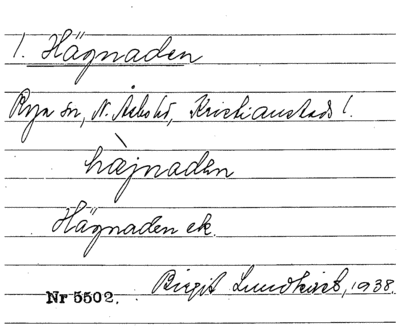 1. Hägnaden
Rya sn, N. Åsbo hd, Kristianstads l.
hæ̀jnaden
Hägnaden ek.
Birgit Lundkvist, 1938.
Nr 5502.